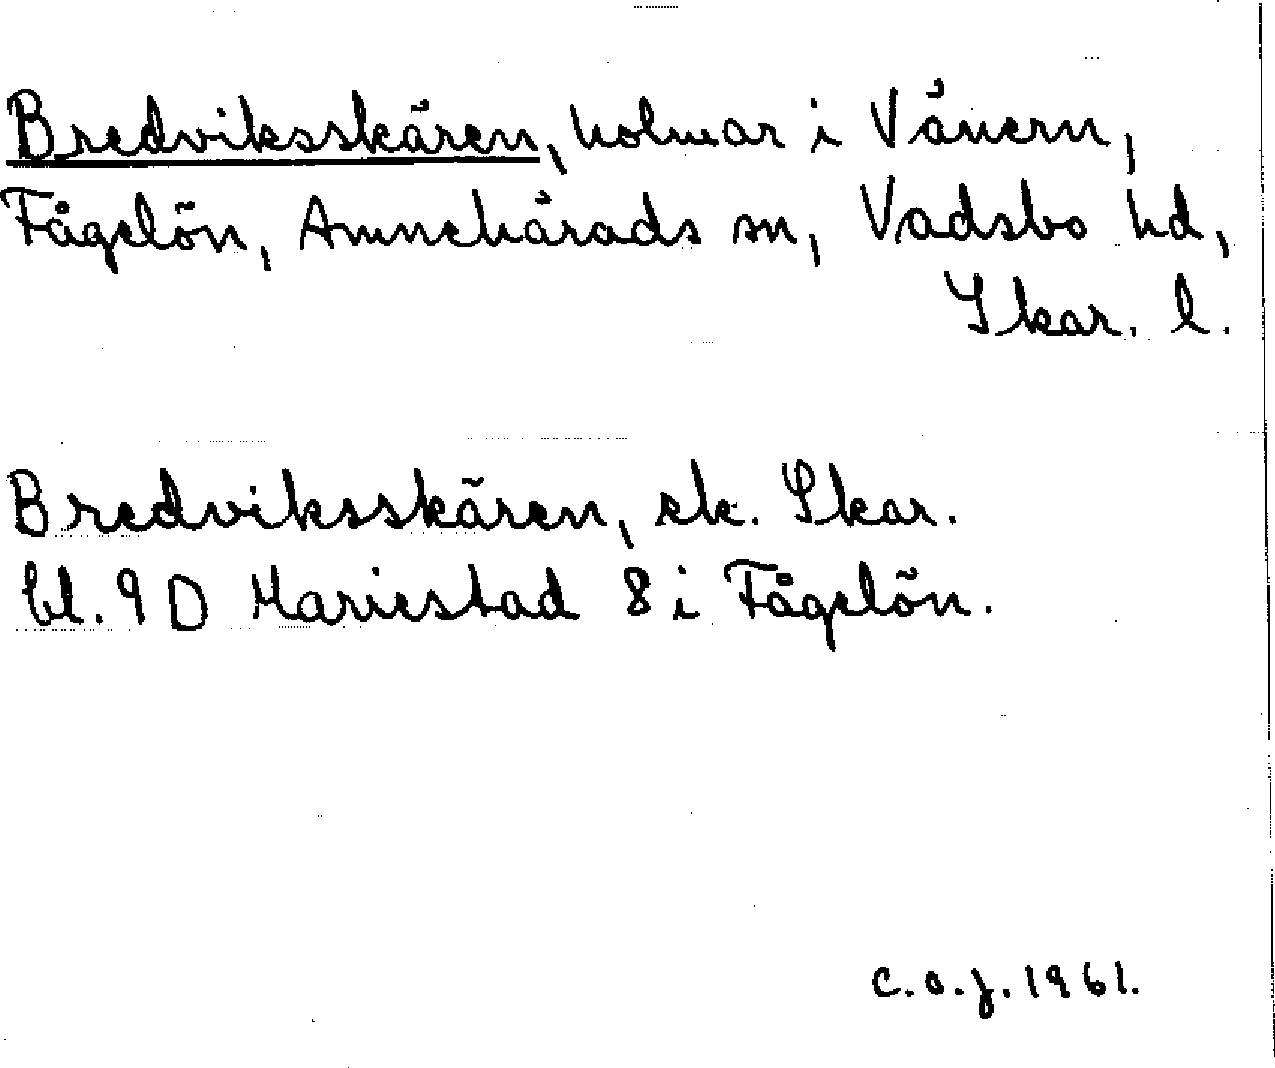 Bredviksskären, holmar i Vänern,
Fågelön, Amnehärads sn, Vadsbo hd,
Skar. l.
Bredviksskären, ek. Skar.
bl. 9 D Mariestad 8 i Fågelön.
C.O.J. 1961.